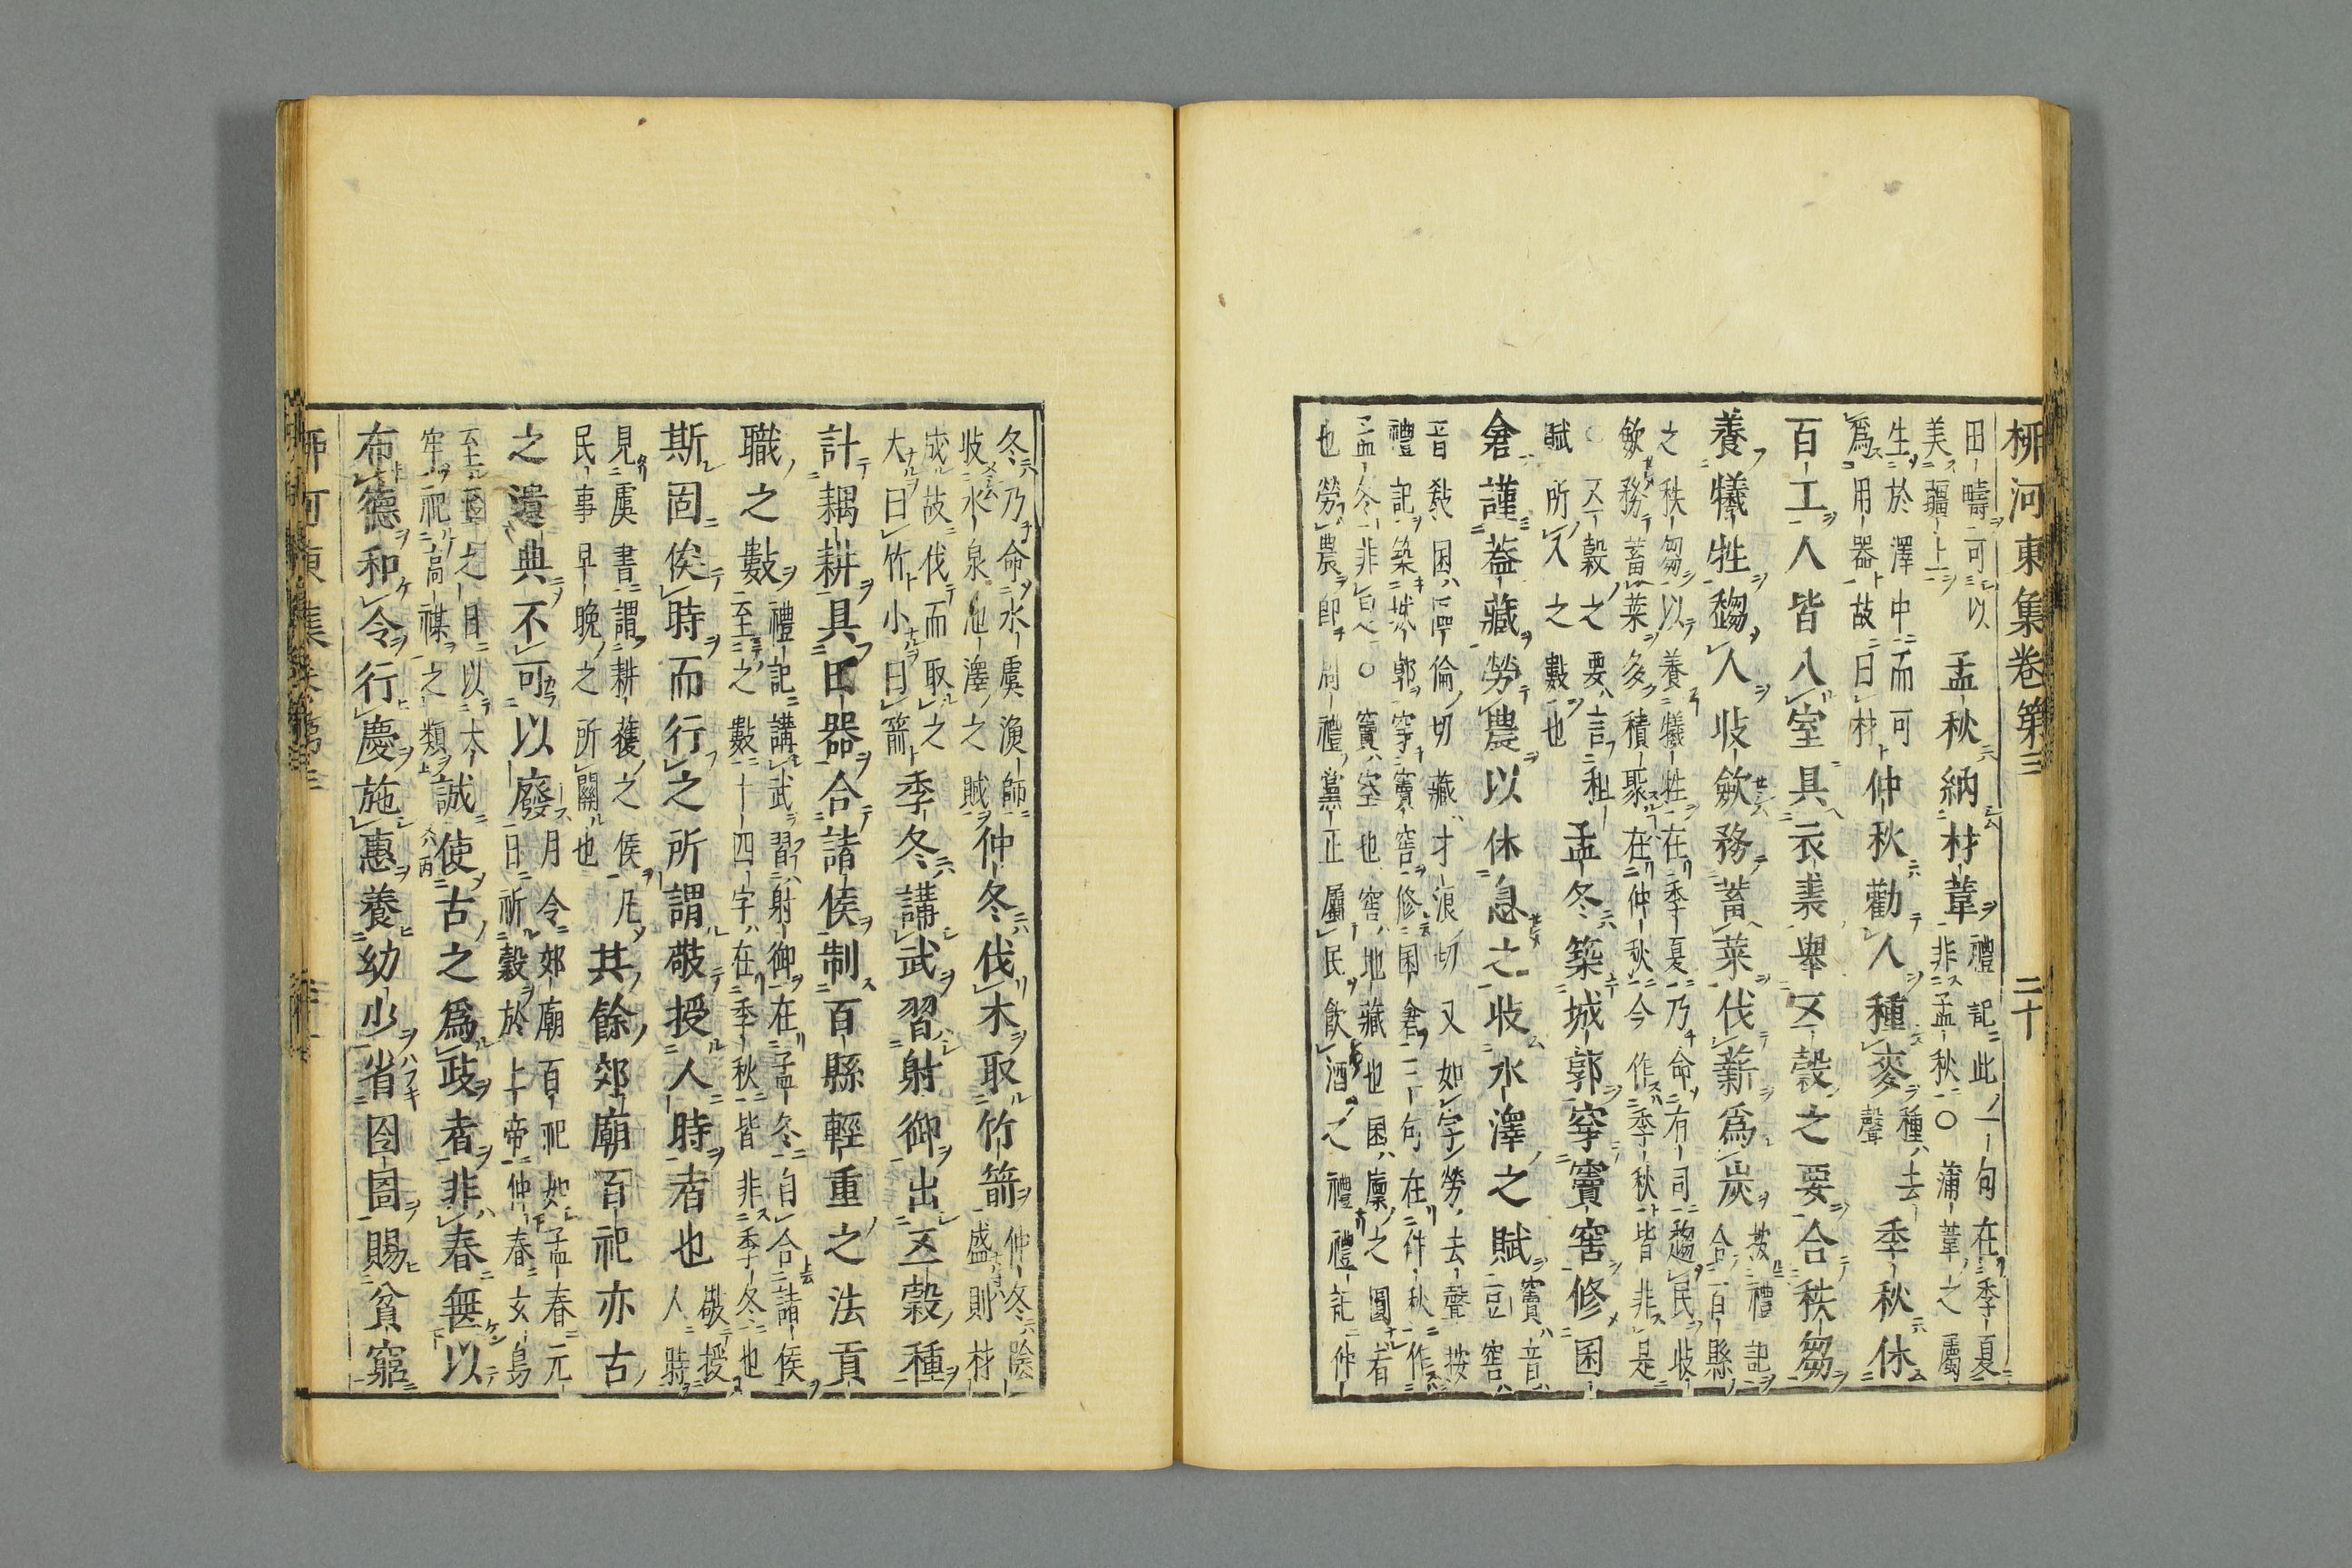 柳河東集卷第三　二十
田疇可以
美疆上
孟秋納材葦
禮記此一句在季夏
非孟秋○蒲葦之屬
生於澤中而可
爲用器故曰材
仲秋勸人種麥
種去
聲
季秋休
百工人皆入室具衣裘舉五穀之要合秩芻
養犧牲趨人收斂務蓄菜伐薪爲炭
按禮記
合百縣
之秩芻以養犧牲在季夏乃命有司趨民收
斂務蓄菜多積聚在仲秋今作季秋皆非是
○五穀之要言租
賦所入之數也
孟冬築城郭穿竇窖修囷
倉謹蓋藏勞農以休息之收水澤之賦
竇音
豆窖
音敎囷區倫切藏才浪切又如字勞去聲按
禮記築城郭穿竇窖修囷倉二句在仲秋作
孟冬非是○竇空也窖地藏也囷廩之圓者
也勞農即周禮黨正屬民飲酒之禮禮記仲
冬乃命水虞漁師
收水泉池澤之賦
仲冬伐木取竹箭
仲冬陰
盛則材
成故伐而取之
大曰竹小曰箭
季冬講武習射御出五穀種
計耦耕具田器合諸侯制百縣輕重之法貢
職之數
禮記講武習射御在孟冬自合諸侯
至之數十四字在季秋皆非季冬也
斯固俟時而行之所謂敬授人時者也
敬授
人時
見虞書謂耕穫之候凡
民事早晚之所關也
其餘郊廟百祀亦古
之遺典不可以廢
月令郊廟百祀如孟春元
日祈穀於上帝仲春玄鳥
至至之日以太
牢祀高禖之類
誠使古之爲政者非春無以
布德和令行慶施惠養幼少省囹圄賜貧窮
柳河東集卷第三